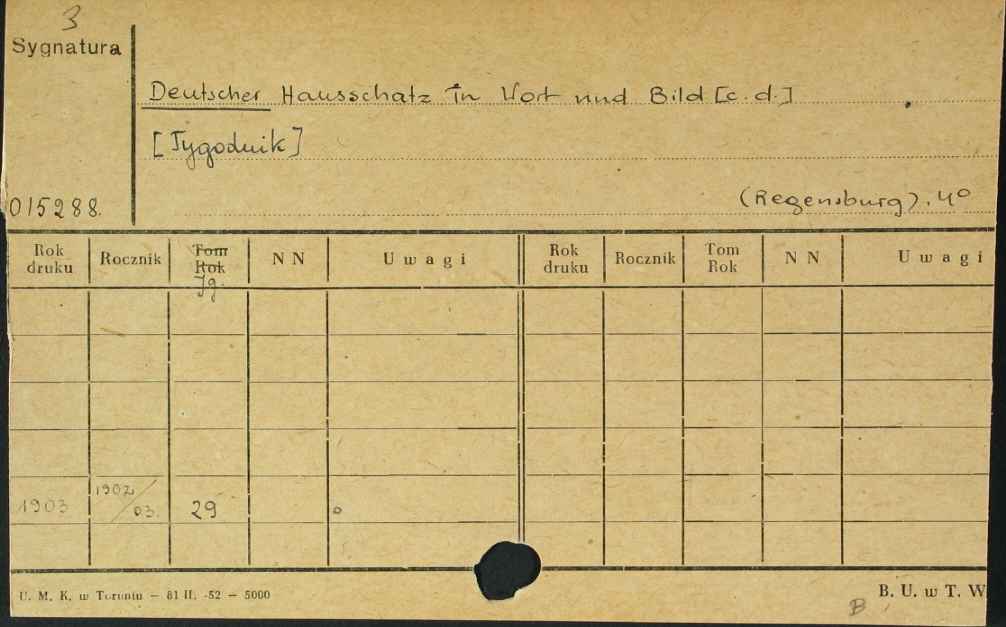 3
Sygnatura
Deutscher Hausschatz in Wort und Bild [c. d.]
[Tygodnik]
015288.
(Regensburg). 4°
Rok druku Rocznik Tom Rok Jg. N N Uwagi Rok druku Rocznik Tom Rok N N Uwagi
1903 1902/03. 29
U. M. K. w Toruniu — 81 II. -52 — 5000
B. U. w T. W
B